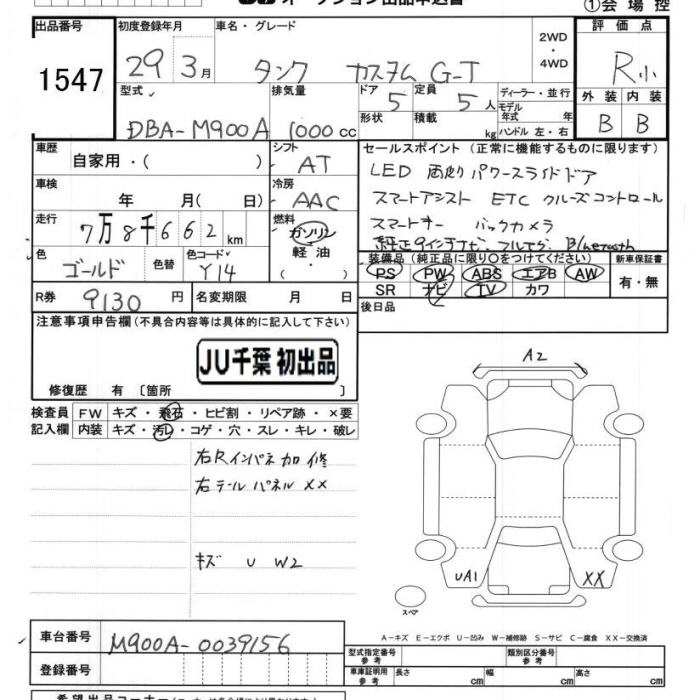 オークション出品申込書
①会場控
出品番号 初度登録年月 車名・グレード 2WD ・ 4WD 評価点
1547 29 3月 タンク カスタム G-T R小
型式 排気量 ドア 5 定員 5人 ディーラー・並行 外装 内装
DBA-M900A 1000cc 形状 積載 kg モデル年式 年 ハンドル 左・右 B B
車歴 自家用・( ) シフト AT セールスポイント (正常に機能するものに限ります)
LED 両側パワースライドドア
車検 年 月( 日) 冷房 AAC スマートアシスト ETC クルーズコントロール
走行 7万8千662km 燃料 ガソリン 軽油 ・ スマートキー バックカメラ
純正9インチナビ フルセグ Bluetooth
色 ゴールド 色替 色コード Y14 装備品 (純正品に限り○をつけてください) 新車保証書
PS PW ABS エアB AW 有・無
SR ナビ TV カワ
R券 9130円 名変期限 月 日 後日品
注意事項申告欄 (不具合内容等は具体的に記入して下さい)
JU千葉 初出品
修復歴 有 〔箇所 〕
A2
検査員 FW キズ・飛石・ヒビ割・リペア跡・×要
記入欄 内装 キズ・汚レ・コゲ・穴・スレ・キレ・破レ
右Rインパネ加修
右テールパネルXX
キズ U W2
UA1 XX
スペア
A-キズ E-エクボ U-凹み W-補修跡 S-サビ C-腐食 XX-交換済
車台番号 M900A-0039156
型式指定番号 参考 類別区分番号 参考
登録番号 車庫証明用 参考 長さ cm 幅 cm 高さ cm
希望出品コーナー